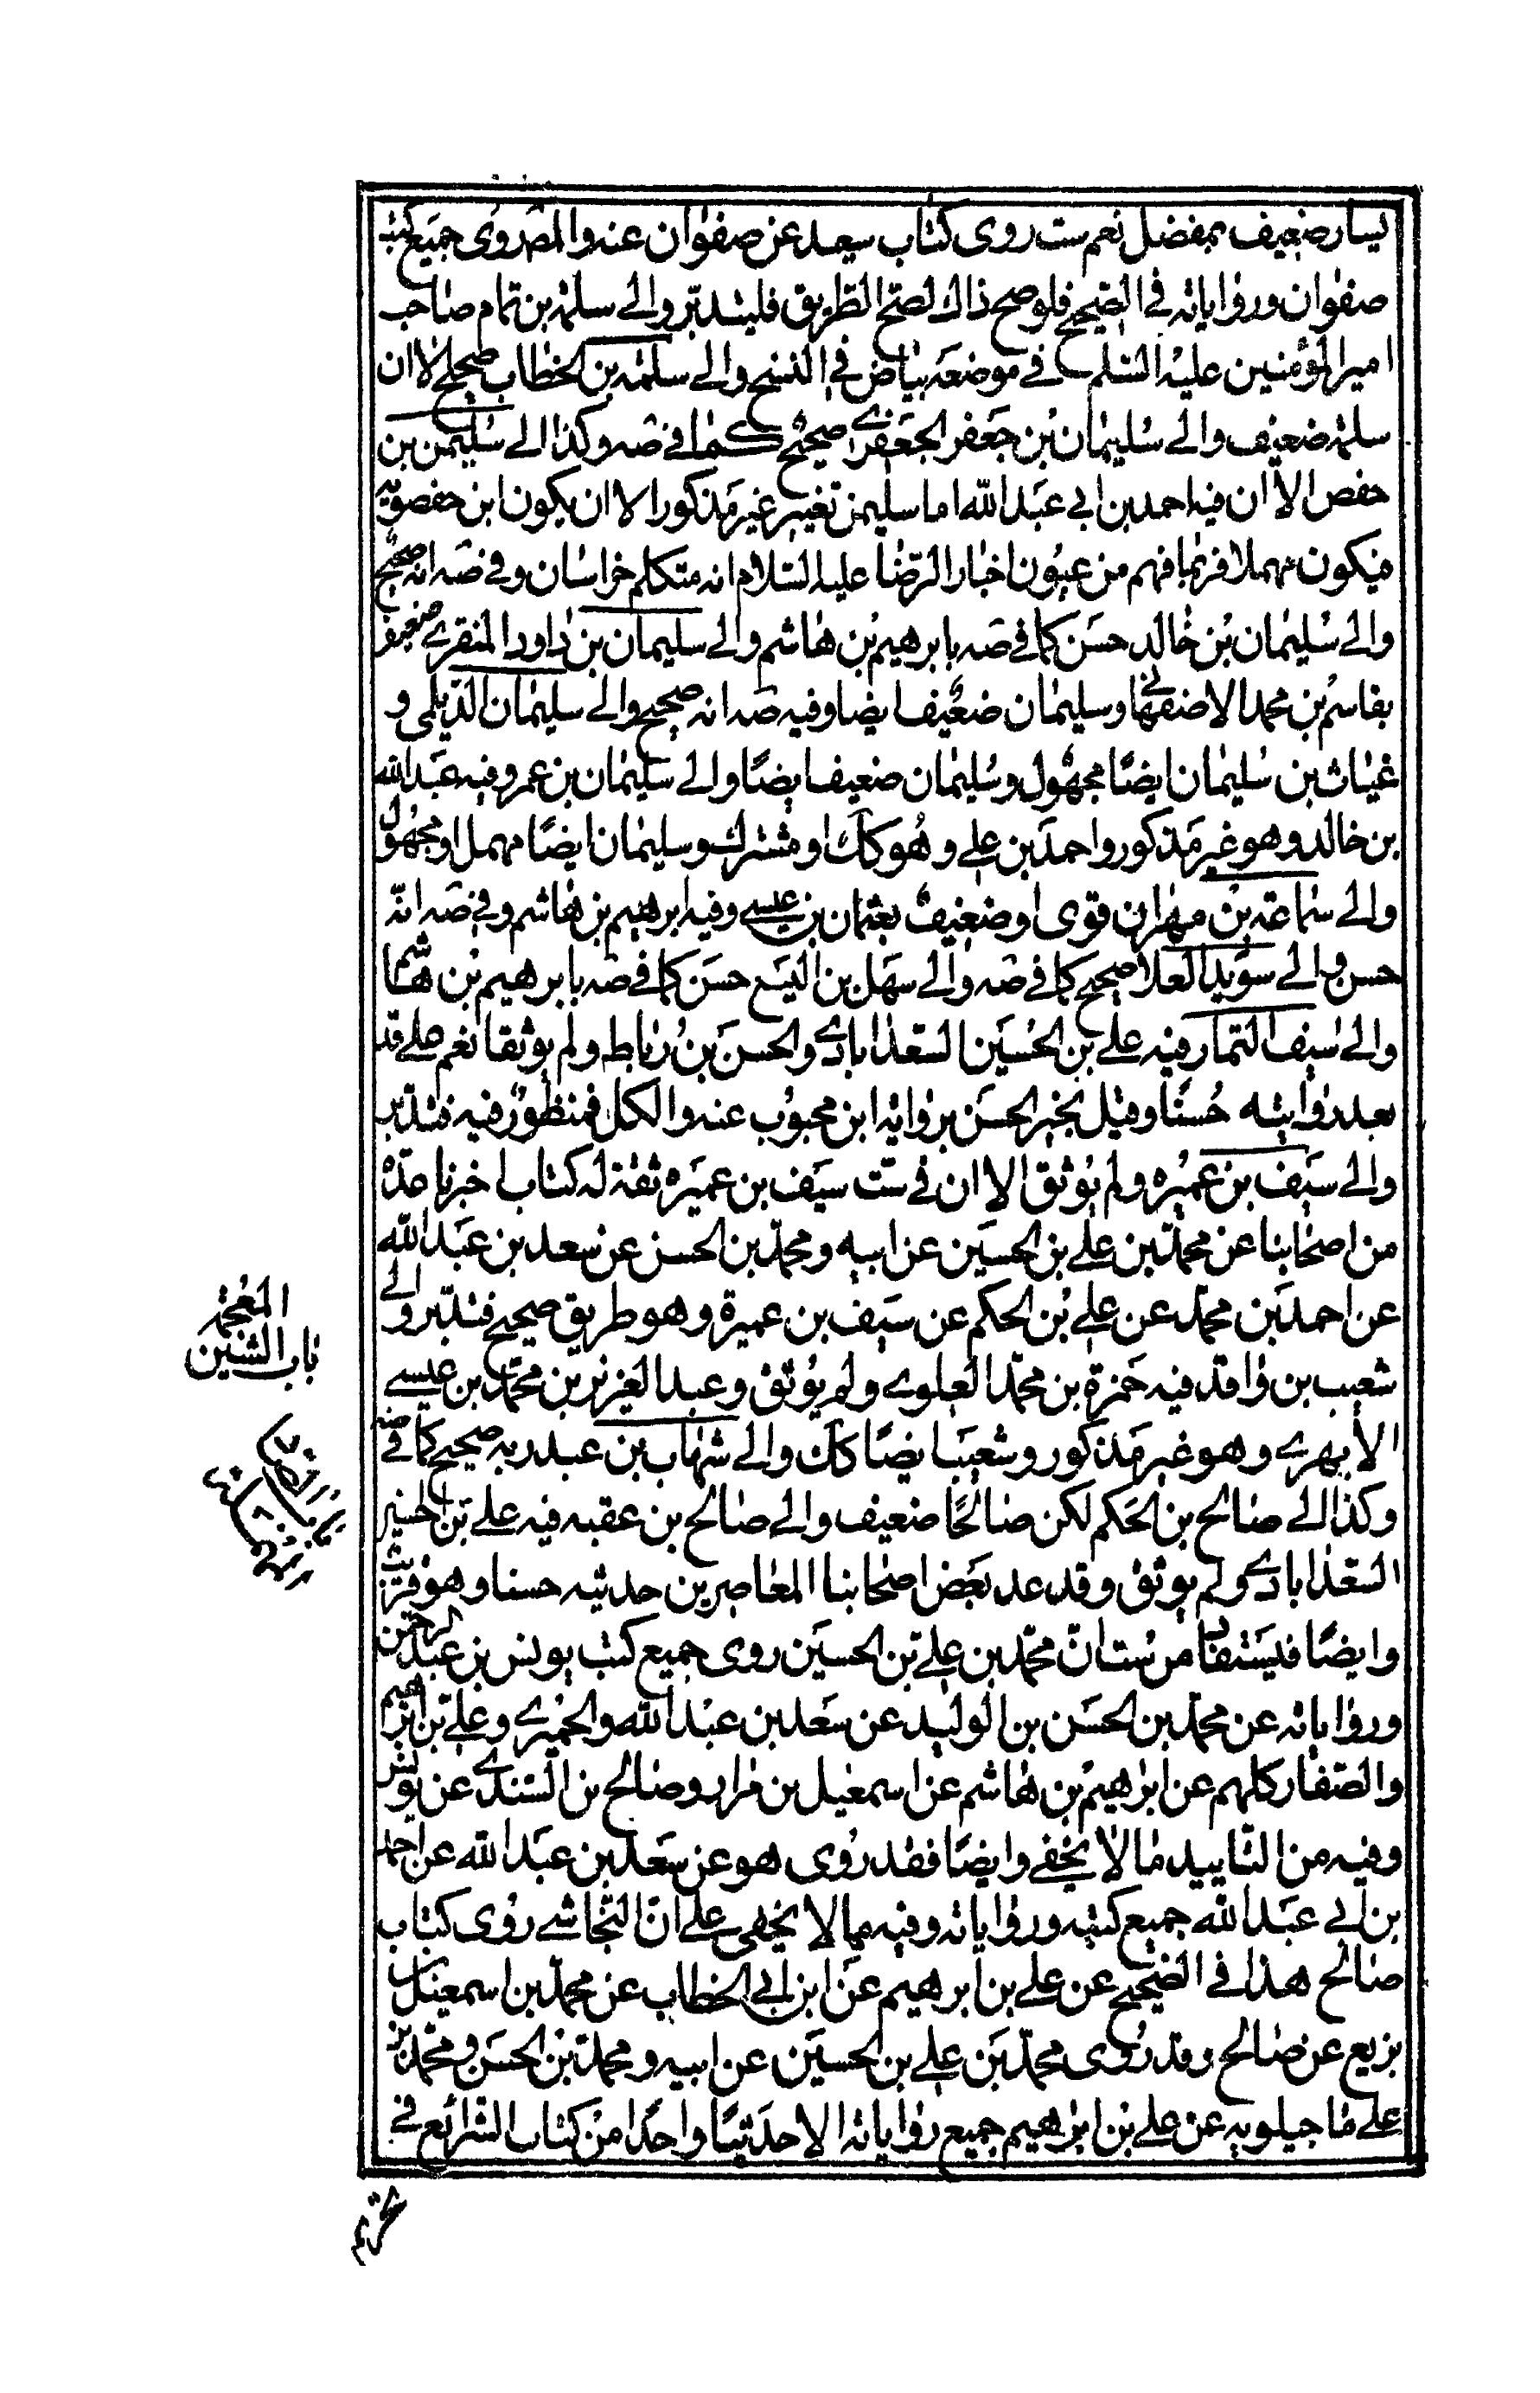 يسار ضعيف بمفضل نعم ست روى كتاب سعيد عن صفوان عنه والمصر وى جميع كتب
صفوان ورواياته فى الصحيح فلو صح ذاك لصح الطريق فليتدبر والى سلمة بن تمام صاحب
امير المؤمنين عليه السلم فى موضعه بياض فى النسخ والى سلمة بن الخطاب صحيح الا ان
سلمة ضعيف والى سليمان بن جعفر الجعفرى صحيح كما فى صه وكذا الى سليمن بن
حفص الا ان فيه احمد بن ابى عبد الله اما سليمن تغيير غير مذكور الا ان يكون ابن حفصويه
فيكون مهملا فربما فهم من عيون اخبار الرضا عليه السلام انه متكلم خراسان وفى صه انه صحيح
والى سليمان بن خالد حسن كما فى صه بابرهيم بن هاشم والى سليمان بن داود المنقرى ضعيف
بقاسم بن محمد الاصفهانى وسليمان ضعيف ايضا وفيه صه انه صحيح والى سليمان الديلمى و
غياث بن سليمان ايضا مجهول وسليمان ضعيف ايضا والى سليمان بن عمر وفيه عبد الله
بن خالد وهو غير مذكور واحمد بن على وهو كك او مشترك وسليمان ايضا مهمل او مجهول
والى سماعة بن مهران قوى او ضعيف بعثمان بن عيسى وفيه ابرهيم بن هاشم وفى صه انه
حسن والى سويد العلا صحيح كما فى صه والى سهل بن اليسع حسن كما فى صه بابرهيم بن هاشم
والى سيف التمار فيه على بن الحسين السعداباذى والحسن بن رباط ولم يوثقا نعم على قد
يعد روايته حسنا وقيل بخبر الحسن برواية ابن محبوب عنه والكل فمنظور فيه فتدبر
والى سيف بن عميره ولم يوثق الا ان فى ست سيف بن عميره ثقة له كتاب اخبرنا عدة
من اصحابنا عن محمد بن على بن الحسين عن ابيه ومحمد بن الحسن عن سعد بن عبد الله
عن احمد بن محمد عن على بن الحكم عن سيف بن عميرة وهو طريق صحيح فتدبر والى
شعيب بن واقد فيه حمزة بن محمد العلوى ولم يوثق وعبد العزيز بن محمد بن عيسى
الابهرى وهو غير مذكور وشعيب ايضا كك والى شهاب بن عبد ربه صحيح كما فى صه
وكذا الى صالح بن الحكم لكن صالحا ضعيف والى صالح بن عقبه فيه على بن الحسين
السعداباذى ولم يوثق وقد عد بعض اصحابنا المعاصرين حديثه حسنا وهو قريب
وايضا فيستفاد من ست ان محمد بن على بن الحسين روى جميع كتب يونس بن عبد الرحمن
ورواياته عن محمد بن الحسن بن الوليد عن سعد بن عبد الله والحميرى وعلى بن ابرهيم
والصفار كلهم عن ابرهيم بن هاشم عن اسمعيل بن مرار وصالح بن السندى عن يونس
وفيه من التاييد ما لا يخفى وايضا فقد روى هو عن سعد بن عبد الله عن احمد
بن ابى عبد الله جميع كتبه ورواياته وفيه ما لا يخفى على ان النجاشى روى كتاب
صالح هذا فى الصحيح عن على بن ابرهيم عن ابن ابى الخطاب عن محمد بن اسمعيل بن
بزيع عن صالح وقد روى محمد بن على بن الحسين عن ابيه ومحمد بن الحسن ومحمد بن
على ماجيلويه عن على بن ابرهيم جميع رواياته الا حديثا واحدا من كتاب الشرائع فى
باب الشين
المعجمة
تحريم